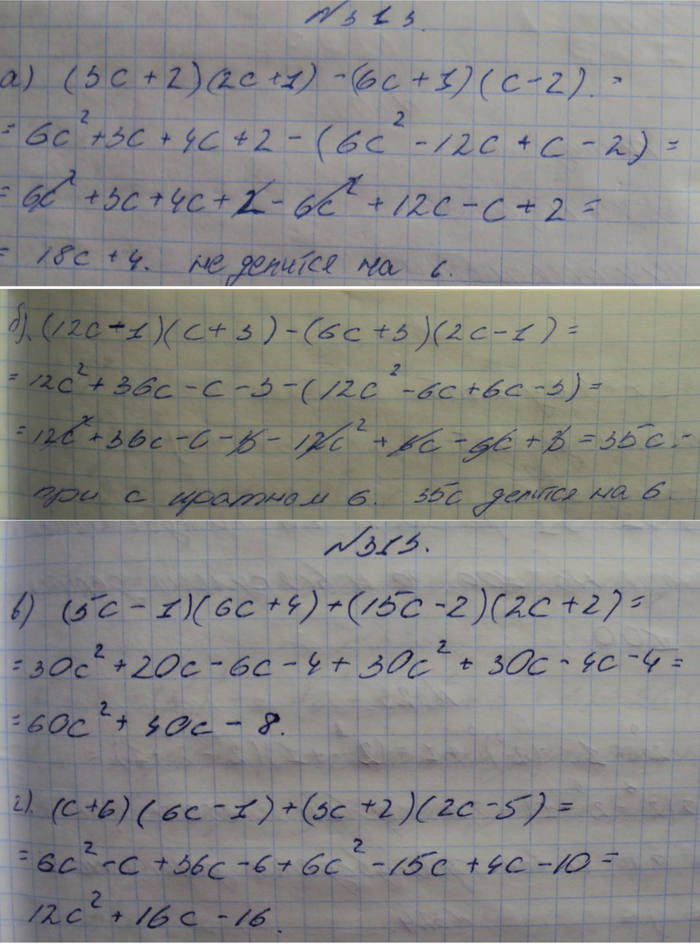 №313.
а) (3c+2)(2c+1)-(6c+1)(c-2).=
=6c²+3c+4c+2-(6c²-12c+c-2)=
=6c²+3c+4c+2-6c²+12c-c+2=
=18c+4. не делится на 6.
б). (12c-1)(c+3)-(6c+3)(2c-1)=
=12c²+36c-c-3-(12c²-6c+6c-3)=
=12c²+36c-c-3-12c²+6c-6c+3=35c.-
при c кратном 6. 35c делится на 6.
№313.
в) (5c-1)(6c+4)+(15c-2)(2c+2)=
=30c²+20c-6c-4+30c²+30c-4c-4=
=60c²+40c-8.
г). (c+6)(6c-1)+(3c+2)(2c-5)=
=6c²-c+36c-6+6c²-15c+4c-10=
12c²+16c-16.